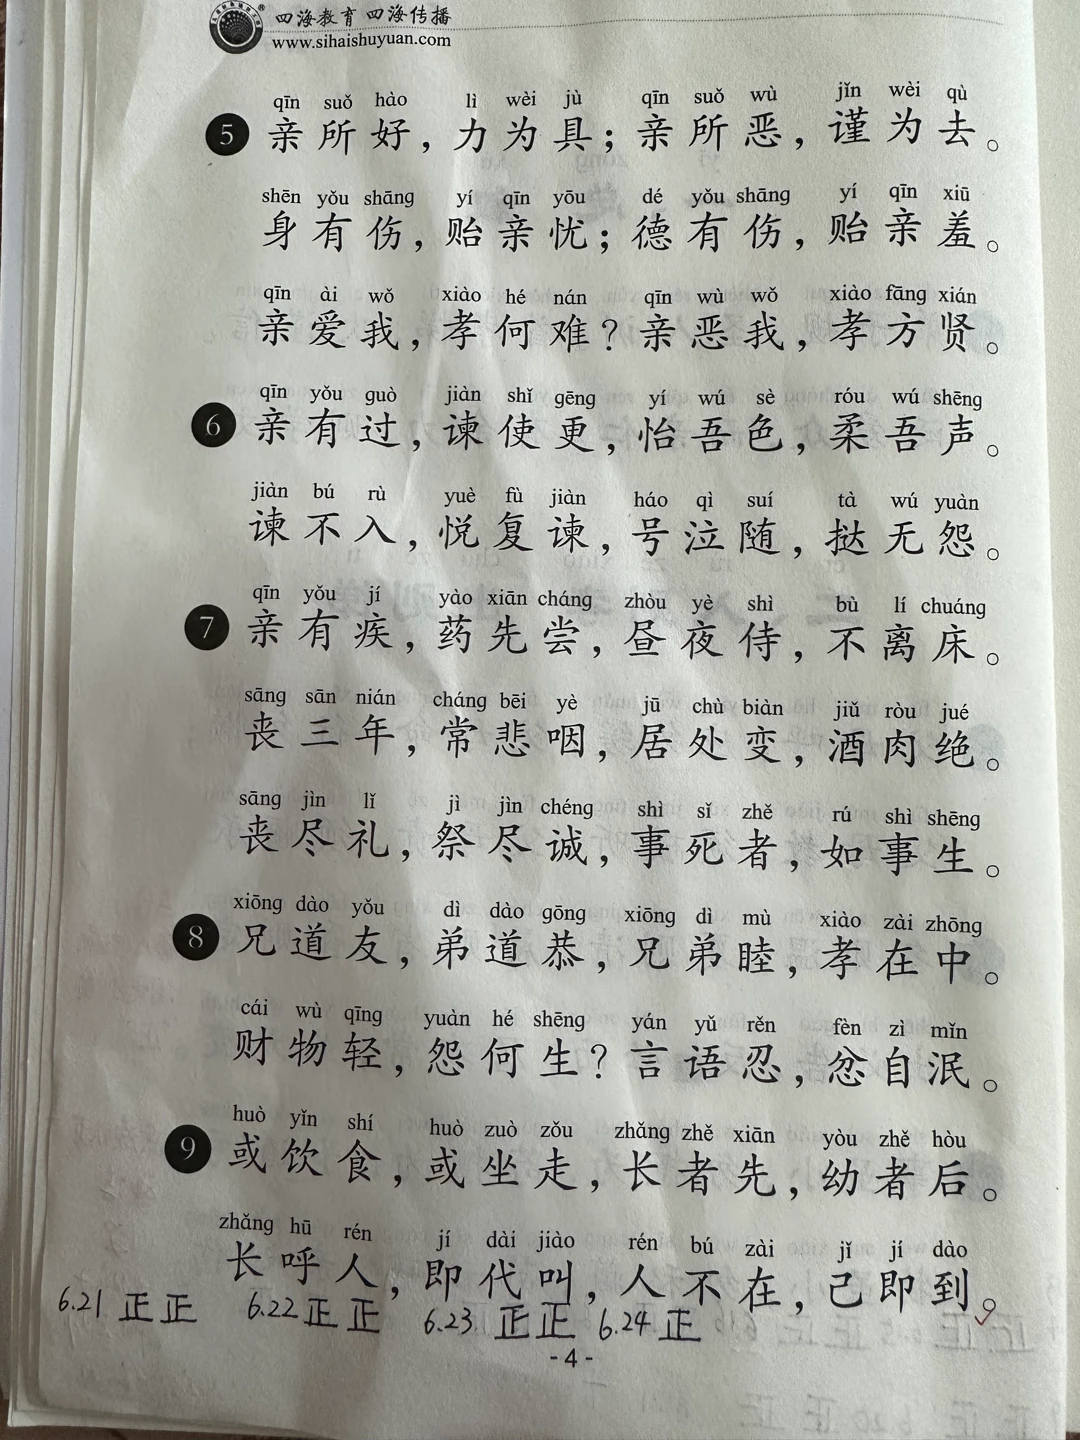 四海教育 四海传播
www.sihaishuyuan.com
qīn suǒ hào lì wèi jù qīn suǒ wù jǐn wèi qù
5 亲所好，力为具；亲所恶，谨为去。
shēn yǒu shāng yí qīn yōu dé yǒu shāng yí qīn xiū
身有伤，贻亲忧；德有伤，贻亲羞。
qīn ài wǒ xiào hé nán qīn wù wǒ xiào fāng xián
亲爱我，孝何难？亲恶我，孝方贤。
qīn yǒu guò jiàn shǐ gēng yí wú sè róu wú shēng
6 亲有过，谏使更，怡吾色，柔吾声。
jiàn bú rù yuè fù jiàn háo qì suí tà wú yuàn
谏不入，悦复谏，号泣随，挞无怨。
qīn yǒu jí yào xiān cháng zhòu yè shì bù lí chuáng
7 亲有疾，药先尝，昼夜侍，不离床。
sāng sān nián cháng bēi yè jū chù biàn jiǔ ròu jué
丧三年，常悲咽，居处变，酒肉绝。
sāng jìn lǐ jì jìn chéng shì sǐ zhě rú shì shēng
丧尽礼，祭尽诚，事死者，如事生。
xiōng dào yǒu dì dào gōng xiōng dì mù xiào zài zhōng
8 兄道友，弟道恭，兄弟睦，孝在中。
cái wù qīng yuàn hé shēng yán yǔ rěn fèn zì mǐn
财物轻，怨何生？言语忍，忿自泯。
huò yǐn shí huò zuò zǒu zhǎng zhě xiān yòu zhě hòu
9 或饮食，或坐走，长者先，幼者后。
zhǎng hū rén jí dài jiào rén bú zài jǐ jí dào
长呼人，即代叫，人不在，己即到。
6.21 正正 6.22 正正 6.23 正正 6.24 正
- 4 -